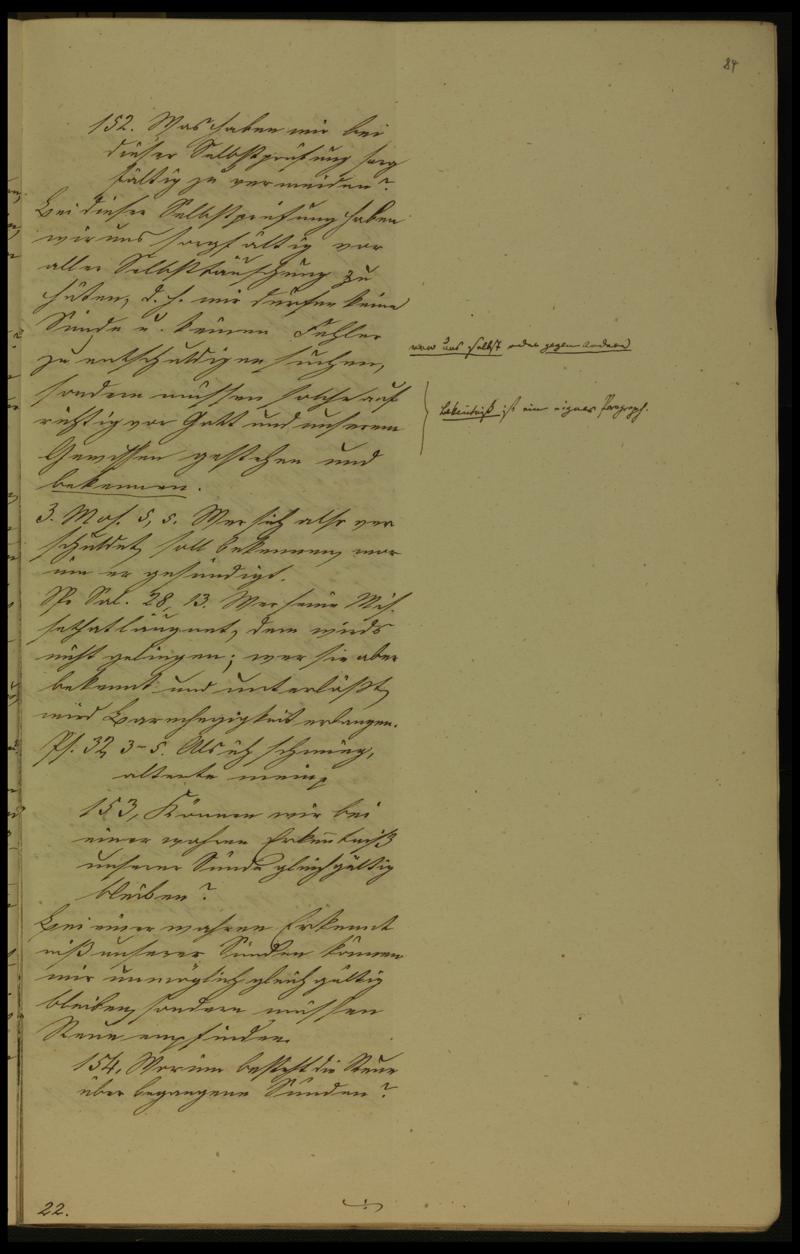 84
152. Was haben wir bei
dieser Selbstprüfung sorg
fältig zu vermeiden?
Bei dieser Selbstprüfung haben
wir uns sorgfältig vor
aller Selbsttäuschung zu
hüten, d. h. wir dürfen keine
Sünde u. keinen Fehler
zu entschuldigen suchen,
sondern müssen solche auf
richtig vor Gott und unserem
Gewissen gestehen und
bekennen.
vor uns selbst oder gegen Andere
Bekentniß ist ein eigner Paragraph.
3. Mos. 5, 5. Wer sich also ver
schuldet, soll bekennen, wor
inn er gesündigt.
Spr. Sal. 28, 13. Wer seine Mis
sethat läugnet, dem wirds
nicht gelingen; wer sie aber
bekennt und unterläßt,
wird Barmherzigkeit erlangen.
Ps. 32, 3-5. Als ich schwieg,
alterte mein
153, Können wir bei
einer wahren Erkenntniß
unserer Sünde gleichgültig
bleiben?
Bei einer wahren Erkennt
niß unserer Sünden können
wir unmöglich gleichgültig
bleiben, sondern müssen
Reue empfinden.
154, Worinn besteht die Reue
über begangene Sünden?
22.